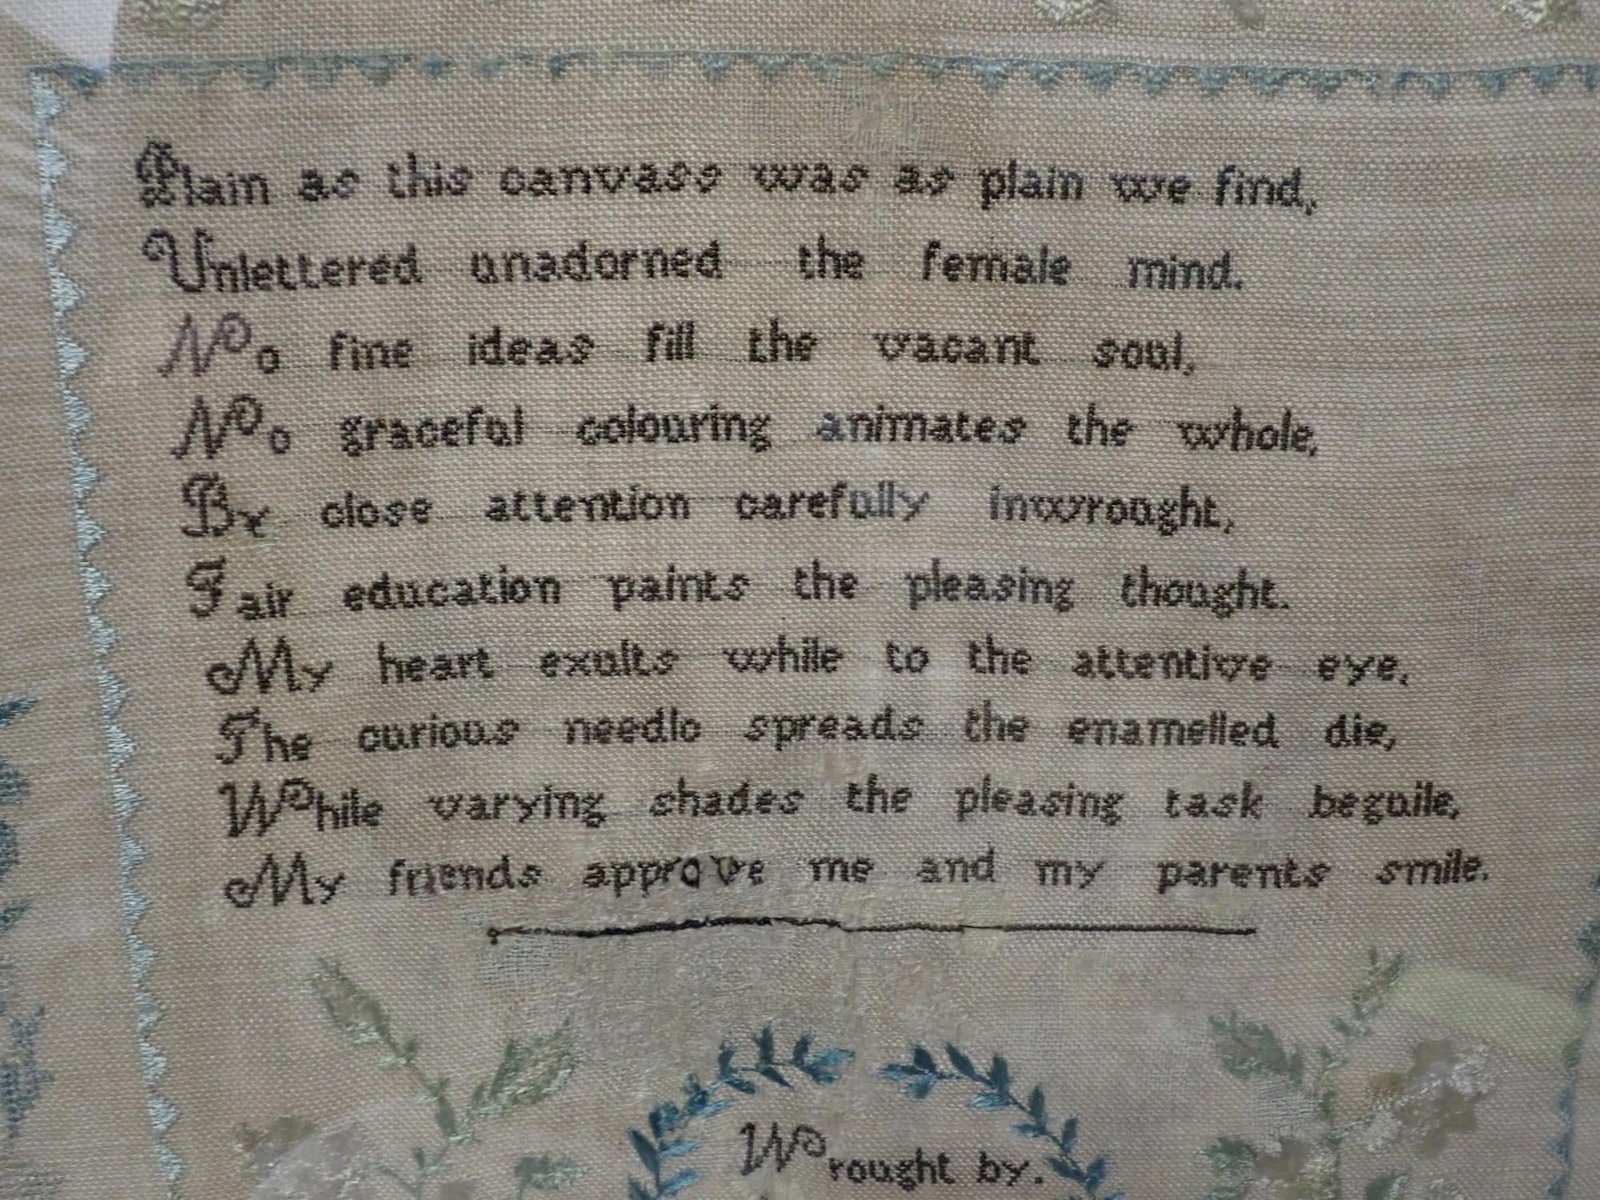 Plain as this canvass was as plain we find,
Unlettered unadorned the female mind.
No fine ideas fill the vacant soul,
No graceful colouring animates the whole,
By close attention carefully inwrought,
Fair education paints the pleasing thought.
My heart exults while to the attentive eye,
The curious needle spreads the enamelled die,
While varying shades the pleasing task beguile,
My friends approve me and my parents smile.
Wrought by.